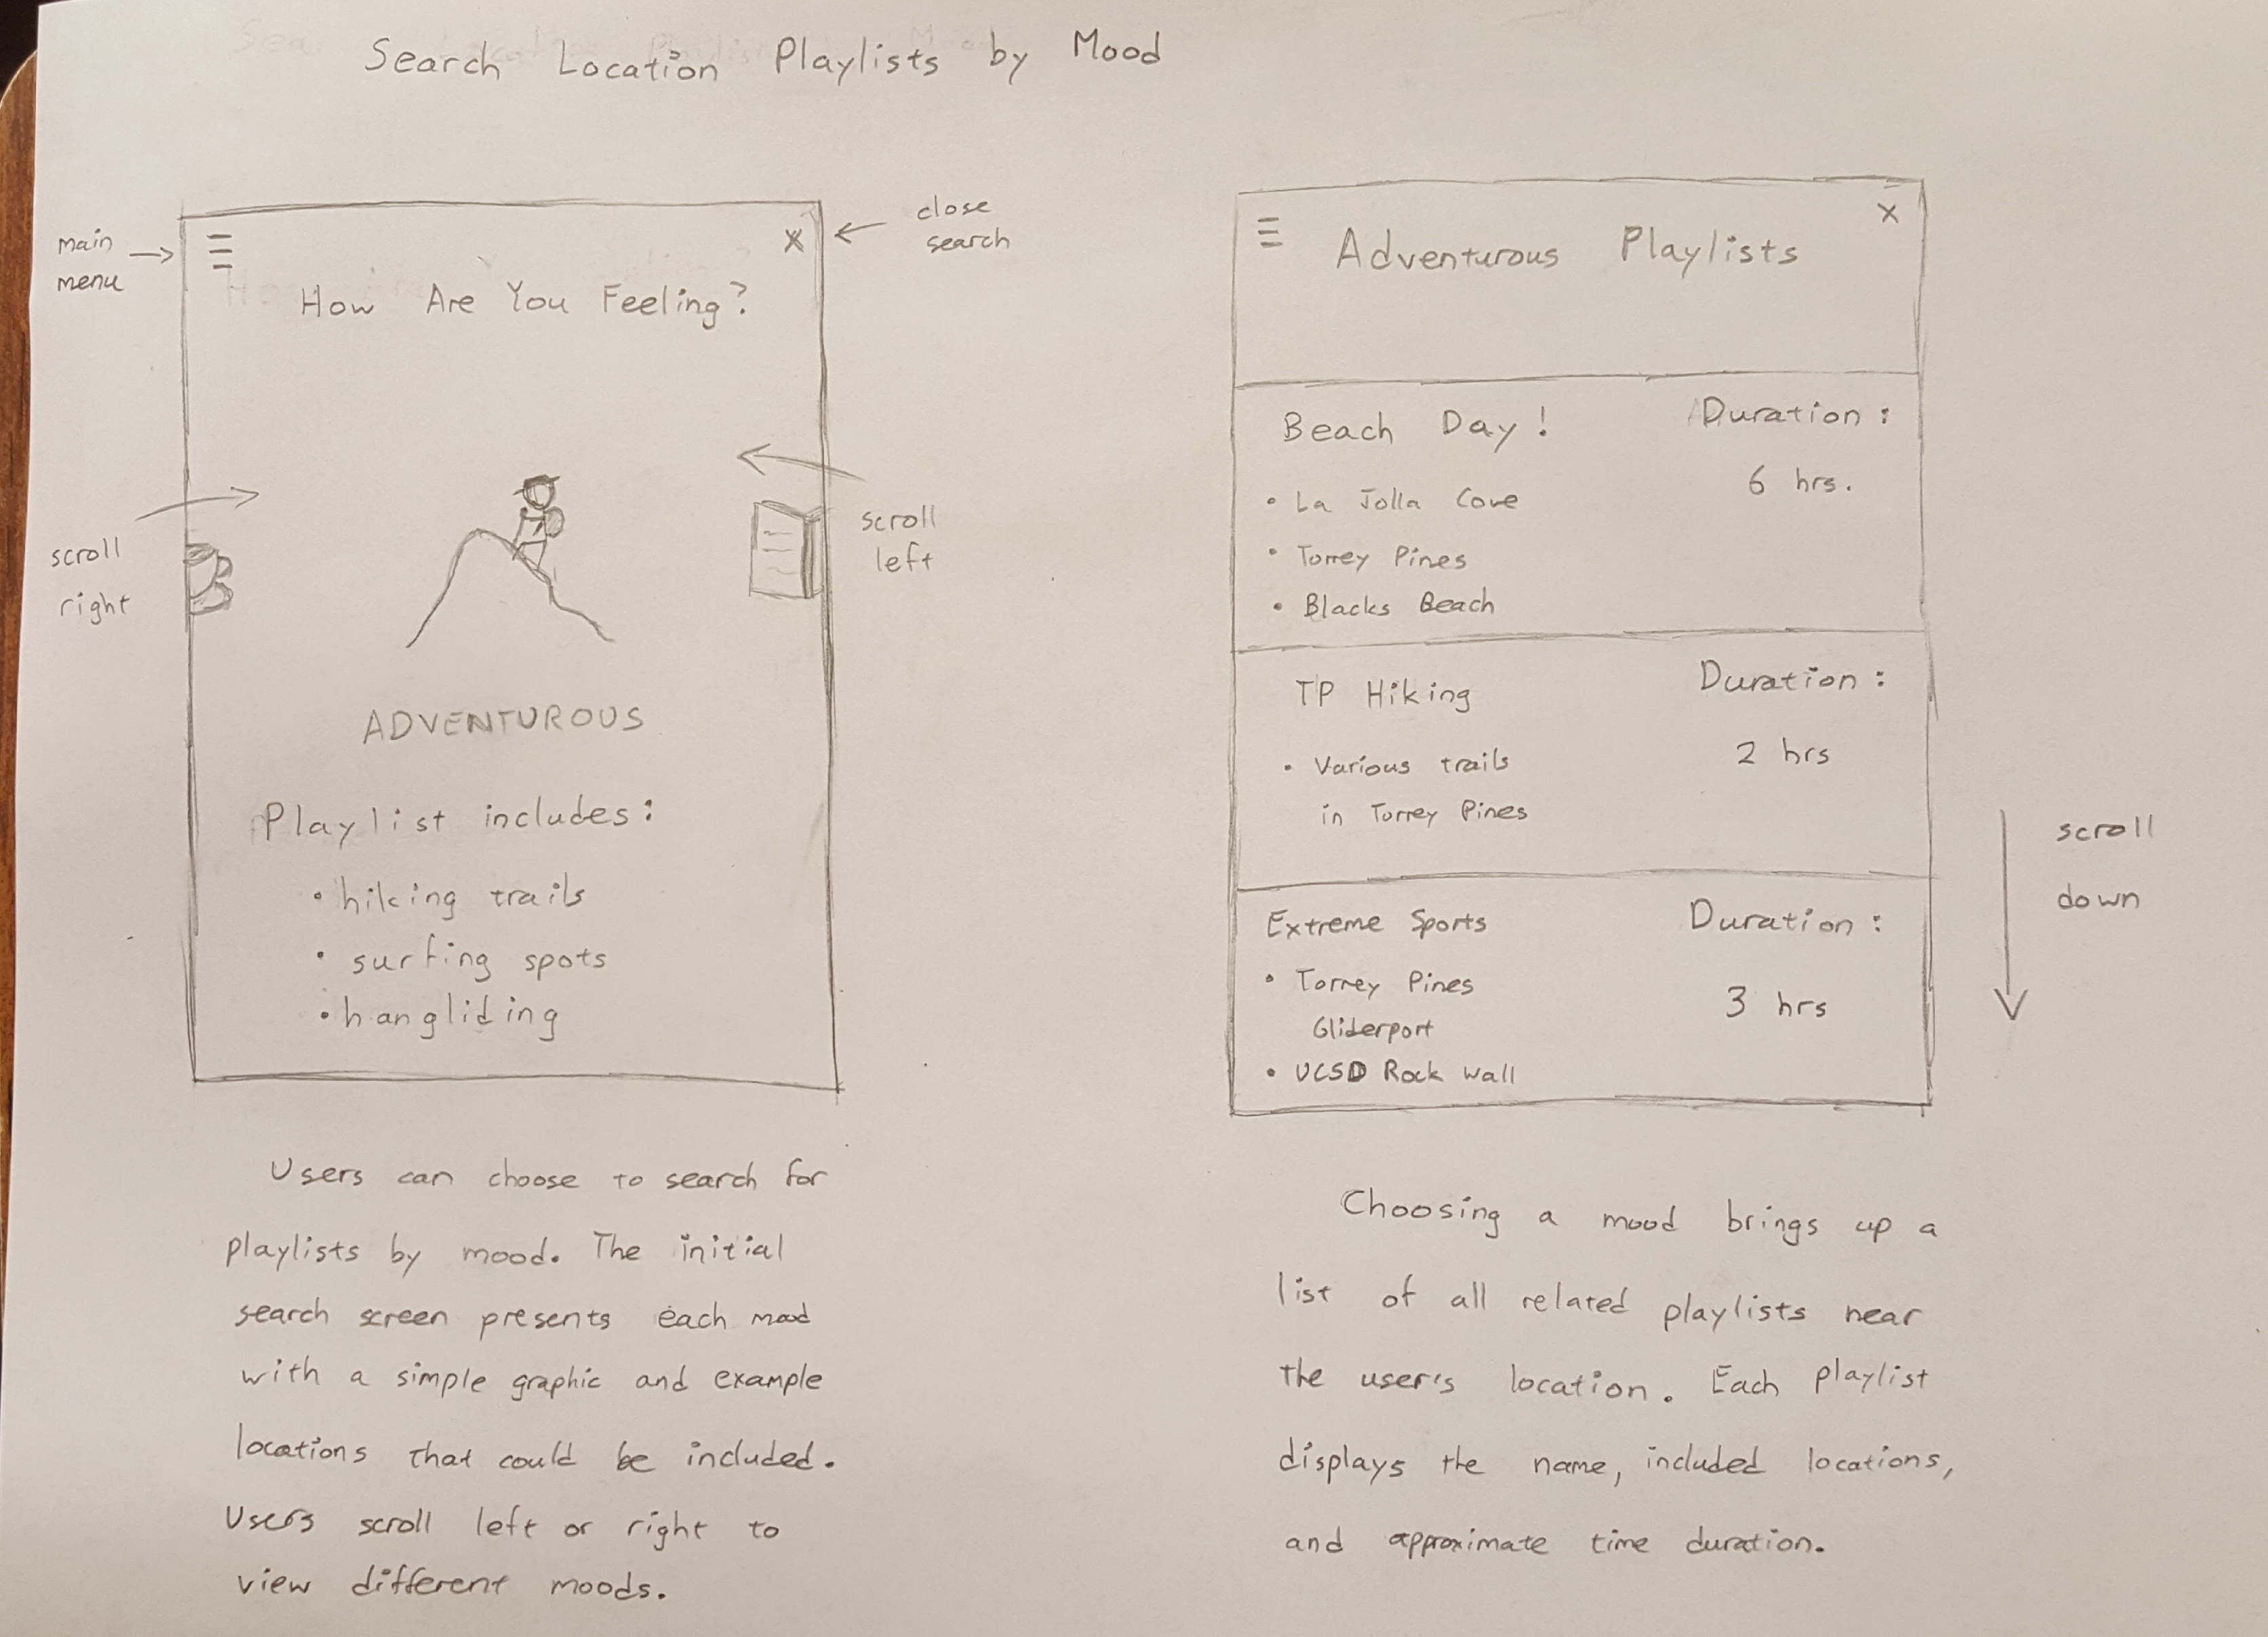 Search Location Playlists by Mood
main
menu
close
search
X
How Are You Feeling?
scroll
right
scroll
left
ADVENTUROUS
Playlist includes:
• hiking trails
• surfing spots
• hangliding
Users can choose to search for
playlists by mood. The initial
search screen presents each mood
with a simple graphic and example
locations that could be included.
Users scroll left or right to
view different moods.
X
Adventurous Playlists
Beach Day! Duration:
6 hrs.
• La Jolla Cove
• Torrey Pines
• Blacks Beach
TP Hiking Duration:
2 hrs
• Various trails
in Torrey Pines
Extreme Sports Duration:
• Torrey Pines
Gliderport
3 hrs
• UCSD Rock Wall
scroll
down
Choosing a mood brings up a
list of all related playlists near
the user's location. Each playlist
displays the name, included locations,
and approximate time duration.